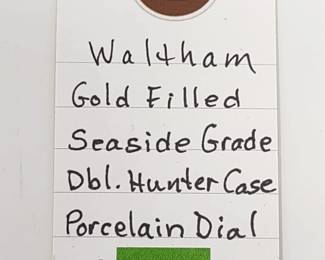 Waltham
Gold Filled
Seaside Grade
Dbl. Hunter Case
Porcelain Dial